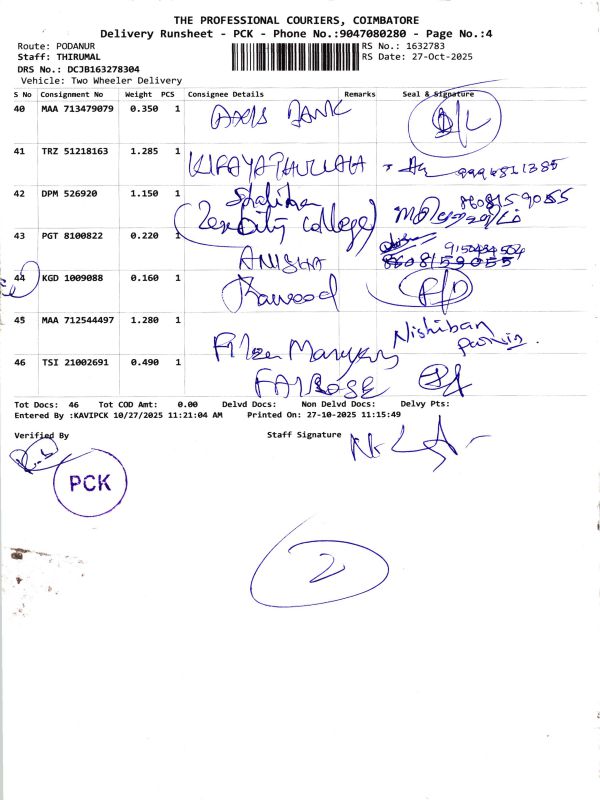 THE PROFESSIONAL COURIERS, COIMBATORE
Delivery Runsheet - PCK - Phone No.:9047080280 - Page No.:4
Route: PODANUR
RS No.: 1632783
Staff: THIRUMAL
RS Date: 27-Oct-2025
DRS No.: DCJB163278304
Vehicle: Two Wheeler Delivery
S No Consignment No Weight PCS Consignee Details Remarks Seal & Signature
40 MAA 713479079 0.350 1 AXIS BANK
41 TRZ 51218163 1.285 1 KIFAYATHULLAH
42 DPM 526920 1.150 1 Shalika
(Zen City College)
43 PGT 8100822 0.220 1 ANISHA
44 KGD 1009088 0.160 1
45 MAA 712544497 1.280 1 Nishiban
46 TSI 21002691 0.490 1 FAIROSE
Tot Docs: 46 Tot COD Amt: 0.00 Delvd Docs: Non Delvd Docs: Delvy Pts:
Entered By :KAVIPCK 10/27/2025 11:21:04 AM Printed On: 27-10-2025 11:15:49
Verified By Staff Signature
PCK
2